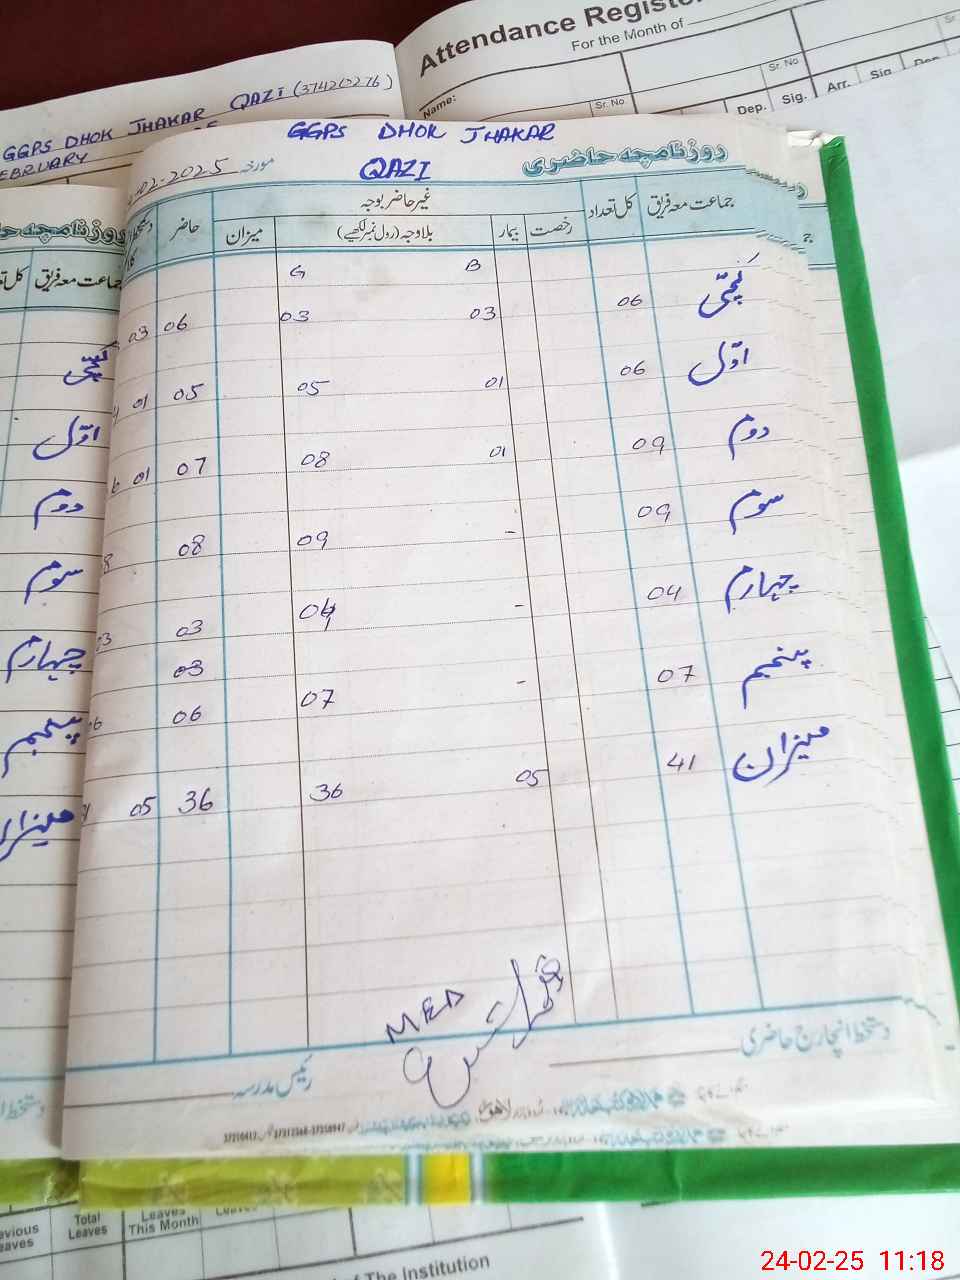 Attendance Register
For the Month of
Name:
Sr. No.
Sr. No.
Dep. Sig. Arr. Sig. Dep.
GGPS DHOK JHAKAR QAZI (37420276)
GGPS DHOK JHAKAR
QAZI
روزنامچہ حاضری
مورخہ 02-2025
جماعت معہ فریق کل تعداد غیر حاضر بوجہ حاضر
رخصت بیمار بلاوجہ (رول نمبر لکھیے) میزان
G B
کچّی 06 03 03 06 03
اوّل 06 01 05 05 01
دوم 09 01 08 07 01
سوم 09 - 09 08
چہارم 04 - 04 03
03
پنجم 07 - 07 06
میزان 41 05 36 36 05
کچّی
اوّل
دوم
سوم
چہارم
پنجم
MED
دستخط انچارج حاضری
رئیس مدرسہ
Total Leaves
Leaves This Month
of the Institution
24-02-25 11:18